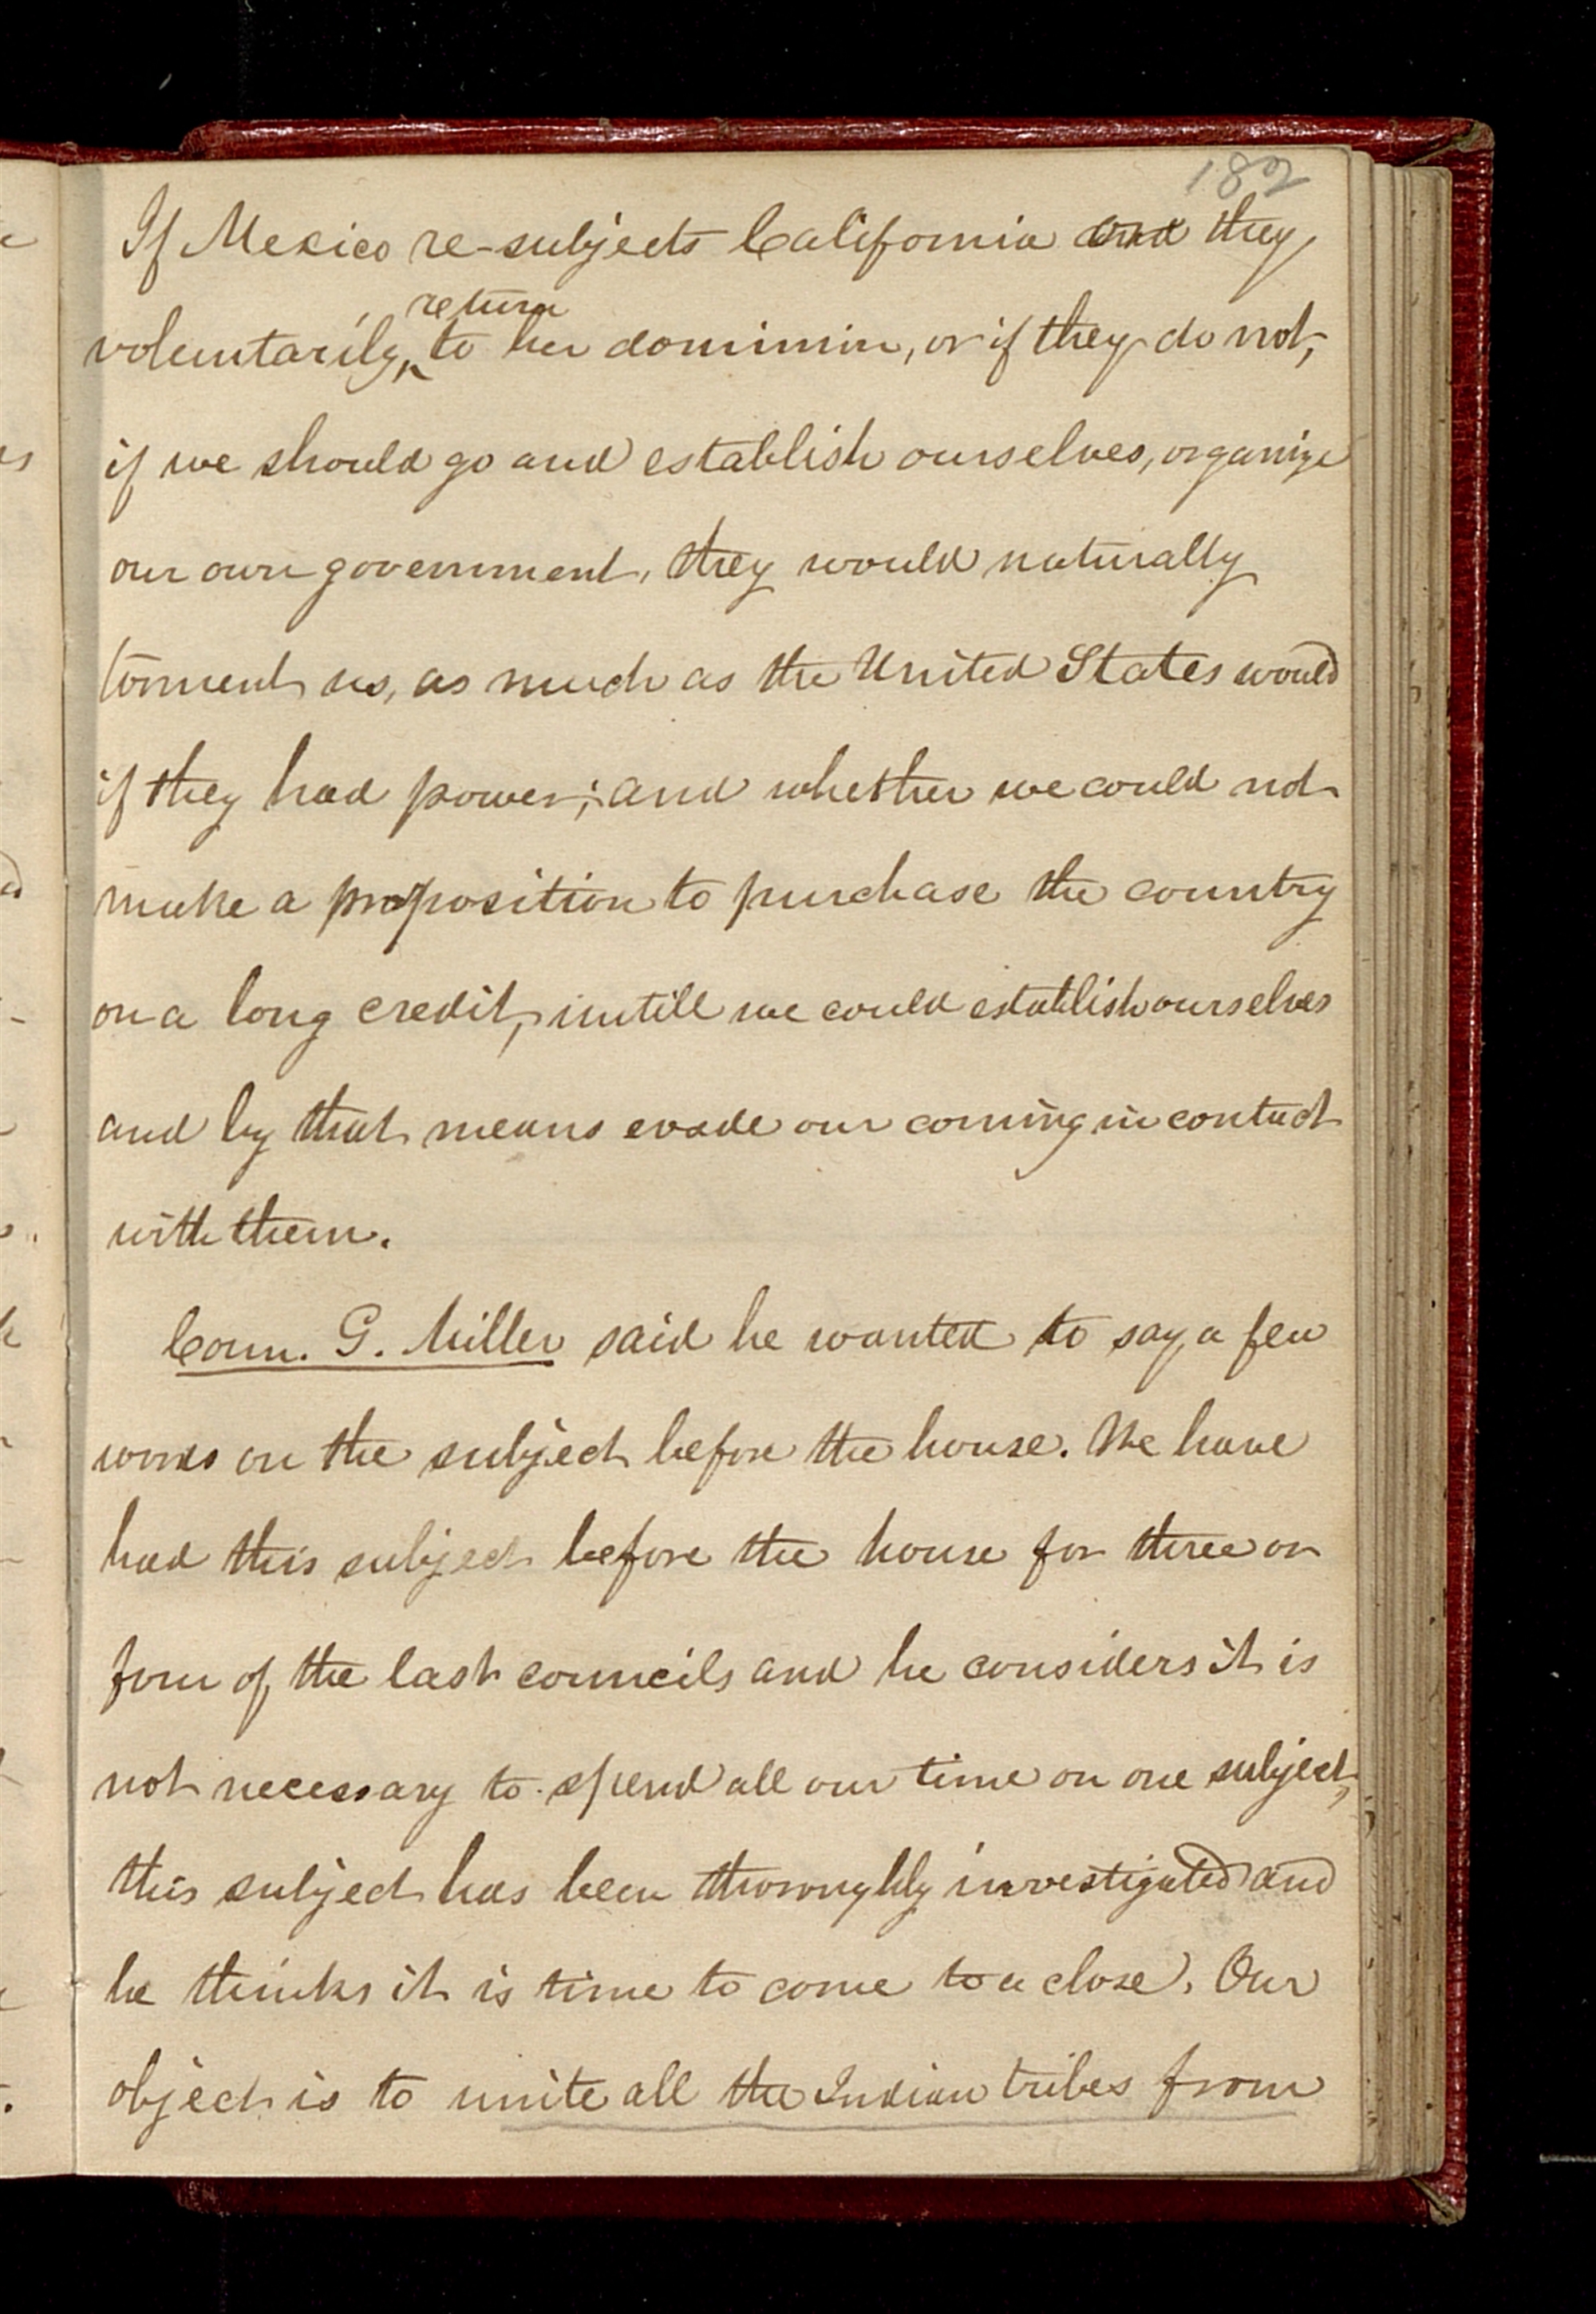 182
If Mexico re-subjects California and they
voluntarily, return to her dominion, or if they do not,
if we should go and establish ourselves, organize
our own government, they would naturally
torment us, as much as the United States would
if they had power; and whether we could not
make a proposition to purchase the country
on a long credit, untill we could establish ourselves
and by that means evade our coming in contact
with them.
Coun. G. Miller said he wanted to say a few
words on the subject before the house. We have
had this subject before the house for three or
four of the last councils and he considers it is
not necessary to spend all our time on one subject,
this subject has been thoroughly investigated and
he thinks it is time to come to a close. Our
object is to unite all the Indian tribes from